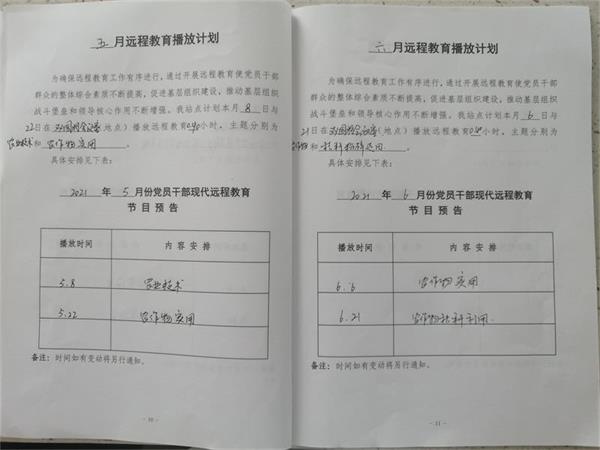 五月远程教育播放计划
为确保远程教育工作有序进行,通过开展远程教育使党员干部
群众的整体综合素质不断提高,促进基层组织建设,推动基层组织
战斗堡垒和领导核心作用不断增强。我站点计划本月 8 日与
22日在(地点)播放远程教育0.40小时,主题分别为
农业技术和农作物实用。
具体安排见下表:
2021 年 5 月份党员干部现代远程教育
节目预告
播放时间 内容安排
5.8 农业技术
5.22 农作物实用
备注:时间如有变动将另行通知。
- 10 -
六月远程教育播放计划
为确保远程教育工作有序进行,通过开展远程教育使党员干部
群众的整体综合素质不断提高,促进基层组织建设,推动基层组织
战斗堡垒和领导核心作用不断增强。我站点计划本月 6 日与
21日在(地点)播放远程教育小时,主题分别为
和。
具体安排见下表:
2021 年 6 月份党员干部现代远程教育
节目预告
播放时间 内容安排
6.6 农作物实用
6.21 农作物利用
备注:时间如有变动将另行通知。
- 11 -